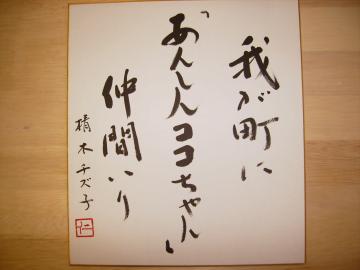 我が町に
「あんしんココちゃん」
仲間いり
植木チズ子
仁